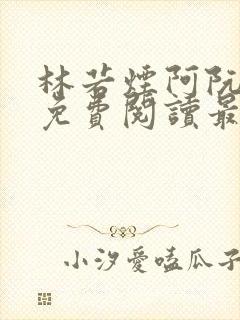 林若煙阿阮
免費閱讀最
小汐愛嗑瓜子